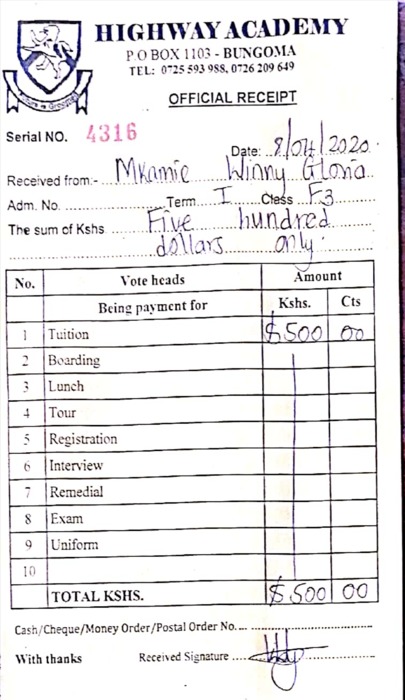 HIGHWAY ACADEMY
P.O BOX 1103 - BUNGOMA
TEL: 0725 593 988, 0726 209 649
OFFICIAL RECEIPT
Serial NO. 4316
Date: 8/04/2020
Received from:- Mkamie Winny Gloria
Adm. No. Term I Class F3
The sum of Kshs Five hundred
dollars only.
No. Vote heads Amount
Being payment for Kshs. Cts
1 Tuition $500 00
2 Boarding
3 Lunch
4 Tour
5 Registration
6 Interview
7 Remedial
8 Exam
9 Uniform
10
TOTAL KSHS. $500 00
Cash/Cheque/Money Order/Postal Order No.
With thanks Received Signature